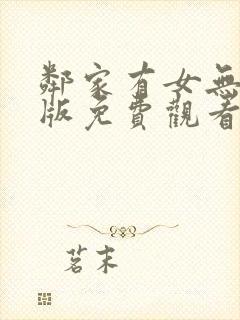 鄰家有女無
版免費觀看
茗末